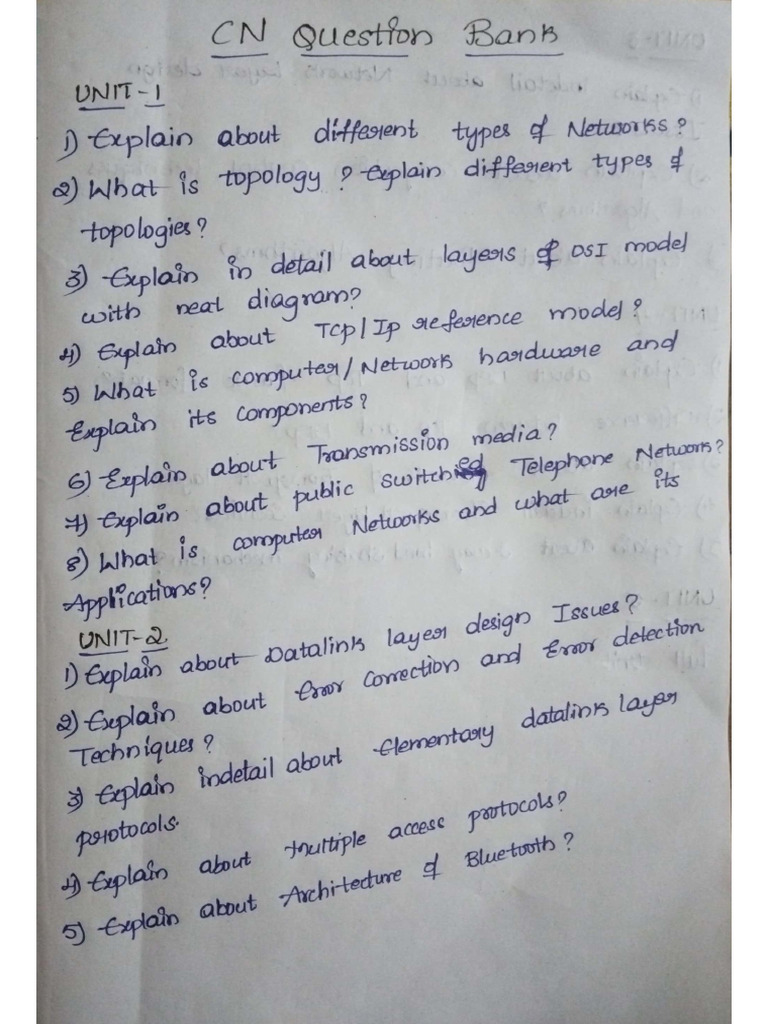 CN Question Bank
UNIT-1
1) Explain about different types of Networks?
2) What is topology? Explain different types of
topologies?
3) Explain in detail about layers of OSI model
with neat diagram?
4) Explain about Tcp/Ip reference model?
5) What is computer/Network hardware and
Explain its components?
6) Explain about Transmission media?
7) Explain about public switched Telephone Network?
8) What is computer Networks and what are its
Applications?
UNIT-2
1) Explain about Datalink layer design Issues?
2) Explain about Error Correction and Error detection
Techniques?
3) Explain indetail about Elementary datalink layer
protocols.
4) Explain about Multiple access protocols?
5) Explain about Architecture of Bluetooth?